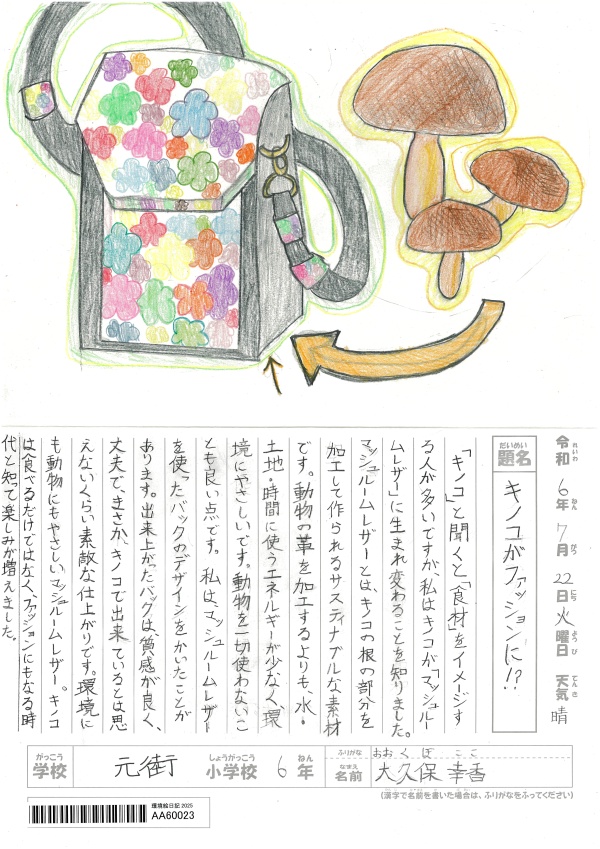 令和 6年 7月 22日 火曜日 天気 晴
れいわ ねん がつ にち ようび てんき
だいめい
題名
キノコがファッションに!?
「キノコ」と聞くと「食材」をイメージす
る人が多いですが、私はキノコが「マッシュルー
ムレザー」に生まれ変わることを知りました。
マッシュルームレザーとは、キノコの根の部分を
加工して作られるサスティナブルな素材
です。動物の革を加工するよりも、水・
土地・時間に使うエネルギーが少なく、環
境にやさしいです。動物を一切使わないこ
とも良い点です。私は、マッシュルームレザー
を使ったバックのデザインをかいたことが
あります。出来上がったバックは、質感が良く、
丈夫で、まさか、キノコで出来ているとは思
えないくらい素敵な仕上がりです。環境に
も動物にもやさしいマッシュルームレザー。キノコ
は食べるだけではなく、ファッションにもなる時
代と知って楽しみが増えました。
がっこう しょうがっこう ねん ふりがな おおくぼ ここ
学校 元街 小学校 6年 なまえ 名前 大久保 幸香
(漢字で名前を書いた場合は、ふりがなをふってください)
環境絵日記 2025
AA60023